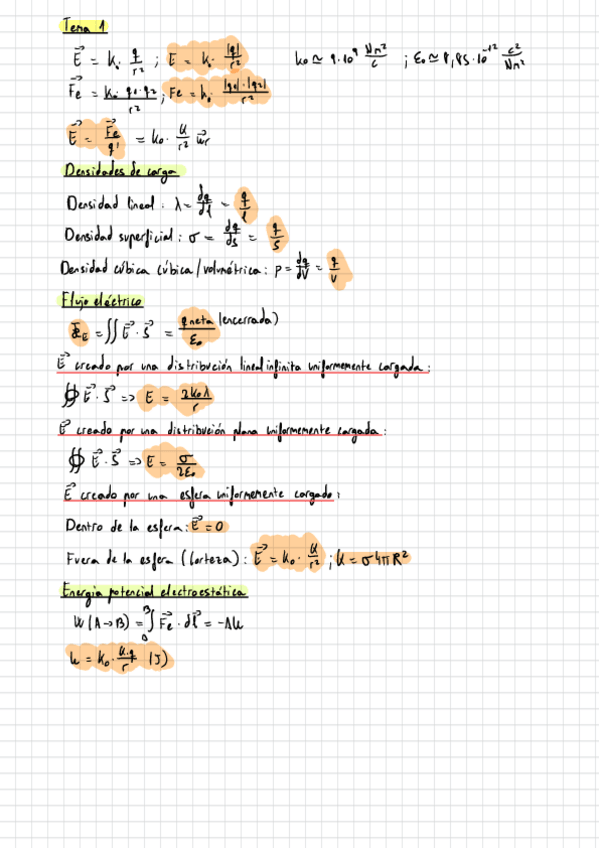 Tema 1
E⃗ = k₀ · q/r² ; E = k₀ · |q|/r²    k₀ ≃ 9·10⁹ Nm²/C ; ε₀ ≃ 8,85·10⁻¹² C²/Nm²
F⃗e = k₀·q₁·q₂/r² ; Fe = k₀ · |q₁|·|q₂|/r²
E⃗ = F⃗e/q' = k₀ · Q/r² u⃗r
Densidades de carga
Densidad lineal: λ = dq/dl = q/l
Densidad superficial: σ = dq/ds = q/S
Densidad cúbica cúbica/volumétrica: ρ = dq/dV = q/V
Flujo eléctrico
Φ_E = ∬ E⃗ · S⃗ = q neta/ε₀ (encerrada)
E⃗ creado por una distribución lineal infinita uniformemente cargada:
∯ E⃗ · S⃗ => E = 2k₀λ/r
E⃗ creado por una distribución plana uniformemente cargada:
∯ E⃗ · S⃗ => E = σ/2ε₀
E⃗ creado por una esfera uniformemente cargada:
Dentro de la esfera: E⃗ = 0
Fuera de la esfera (Corteza): E⃗ = k₀ · Q/r² ; Q = σ4πR²
Energía potencial electroestática
W(A→B) = ∫ F⃗e · dl⃗ = -ΔU
U = k₀ · Q·q/r (J)